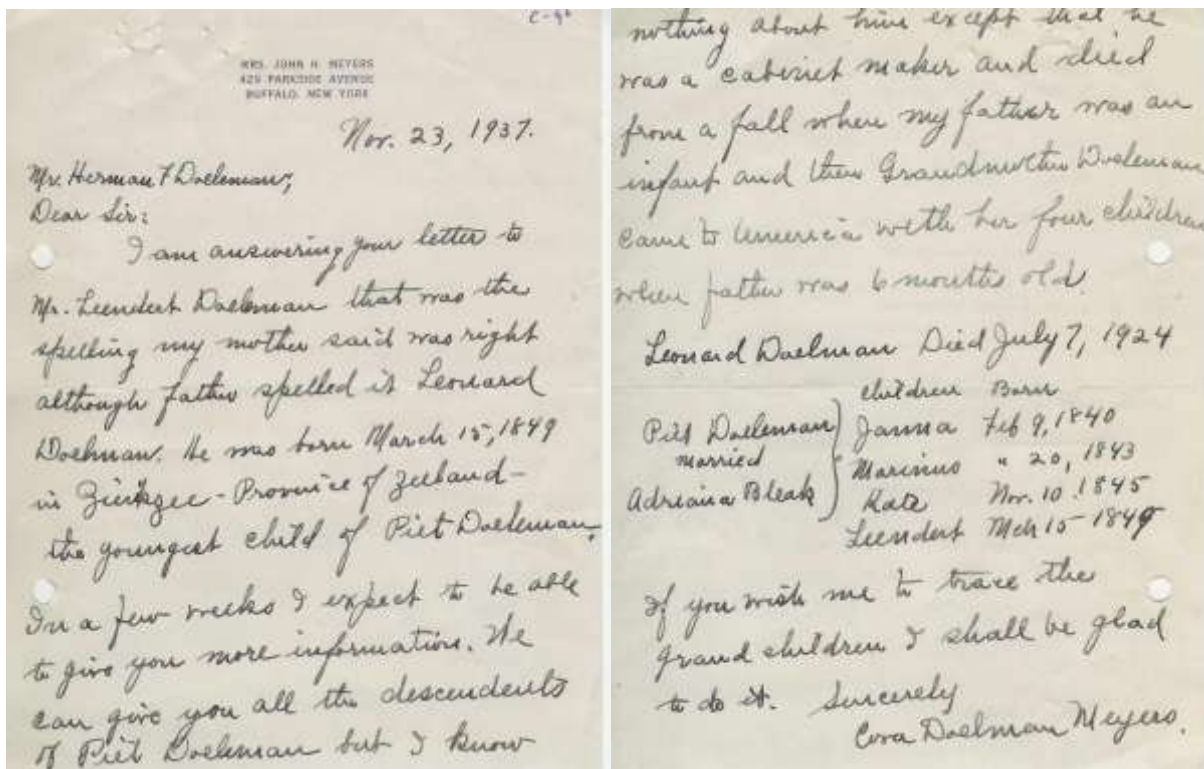 C-9
MRS. JOHN H. MEYERS
425 PARKSIDE AVENUE
BUFFALO, NEW YORK
Nov. 23, 1937.
Mr. Herman F Doeleman,
Dear Sir:
I am answering your letter to
Mr. Leendert Doeleman that was the
spelling my mother said was right
although father spelled it Leonard
Doelman. He was born March 15, 1849
in Zierikzee - Province of Zeeland -
the youngest child of Piet Doeleman.
In a few weeks I expect to be able
to give you more information. We
can give you all the descendents
of Piet Doeleman but I know
nothing about him except that he
was a cabinet maker and died
from a fall when my father was an
infant and then Grandmother Doeleman
came to America with her four children
when father was 6 months old.
Leonard Doelman Died July 7, 1924
children Born
Piet Doeleman Janna Feb 9, 1840
married Marinus " 20, 1843
Adriana Bleak Kate Nov. 10. 1845
Leendert Mch 15 - 1849
If you wish me to trace the
grand children I shall be glad
to do it. Sincerely
Cora Doelman Meyers.